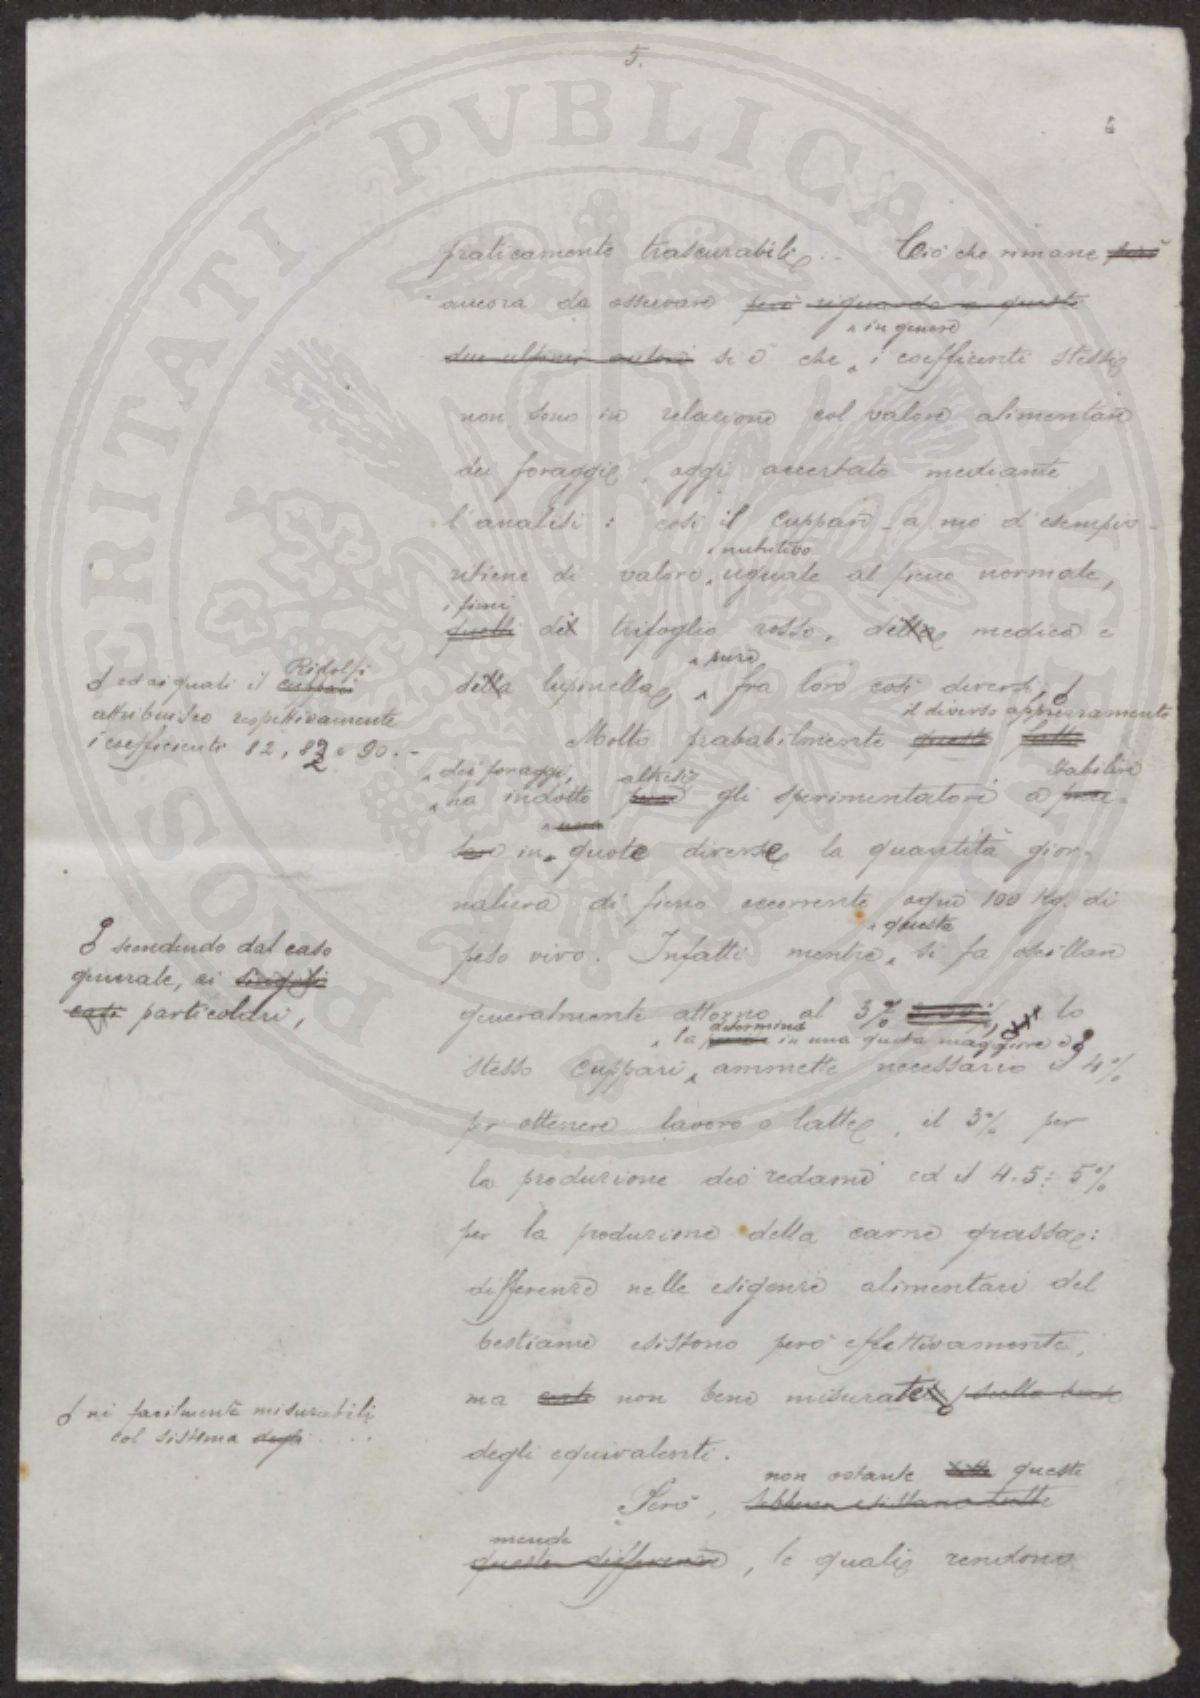 5.
praticamente trascurabili. Ciò che rimane però
ancora da osservare però riguardo a questi
^ in genere
due ultimi autori si è che ^ i coefficienti stessi
non sono in relazione col valore alimentare
dei foraggi, oggi accertato mediante
l'analisi: così il Cuppari - a mo' d'esempio -
^ nutritivo
ritiene di valore ^ uguale al fieno normale,
i fieni
quelli del trifoglio rosso, della medica e
^ pure
della lupinella, ^ fra loro così diversi,
ed ai quali il Ridolfi
Cuppari
attribuisce rispettivamente
i coefficienti 82, 82 e 90. -
il diverso apprezzamento
Molto probabilmente questo fatto
^ dei foraggi, altresì stabilire
^ ha indotto gli sperimentatori a
in quote diverse la quantità gior-
naliera di fieno occorrente ogni 100 Kg. di
^ questa
peso vivo. Infatti mentre ^ si fa oscillare
generalmente attorno al 3% lo
scendendo dal caso
generale, ai singoli
casi particolari,
^ la determina in una quota maggiore e
stesso Cuppari ^ ammette necessario il 4%
per ottenere lavoro o latte, il 3% per
la produzione dei redami ed il 4.5 : 5%
per la produzione della carne grassa:
differenze nelle esigenze alimentari del
bestiame esistono però effettivamente,
ma certo non bene misurate, sulla base
nè facilmente misurabili
col sistema degli ....
degli equivalenti.
non ostante tutte queste
Però, sebbene esistano tutte
mende
queste differenze, le quali rendono